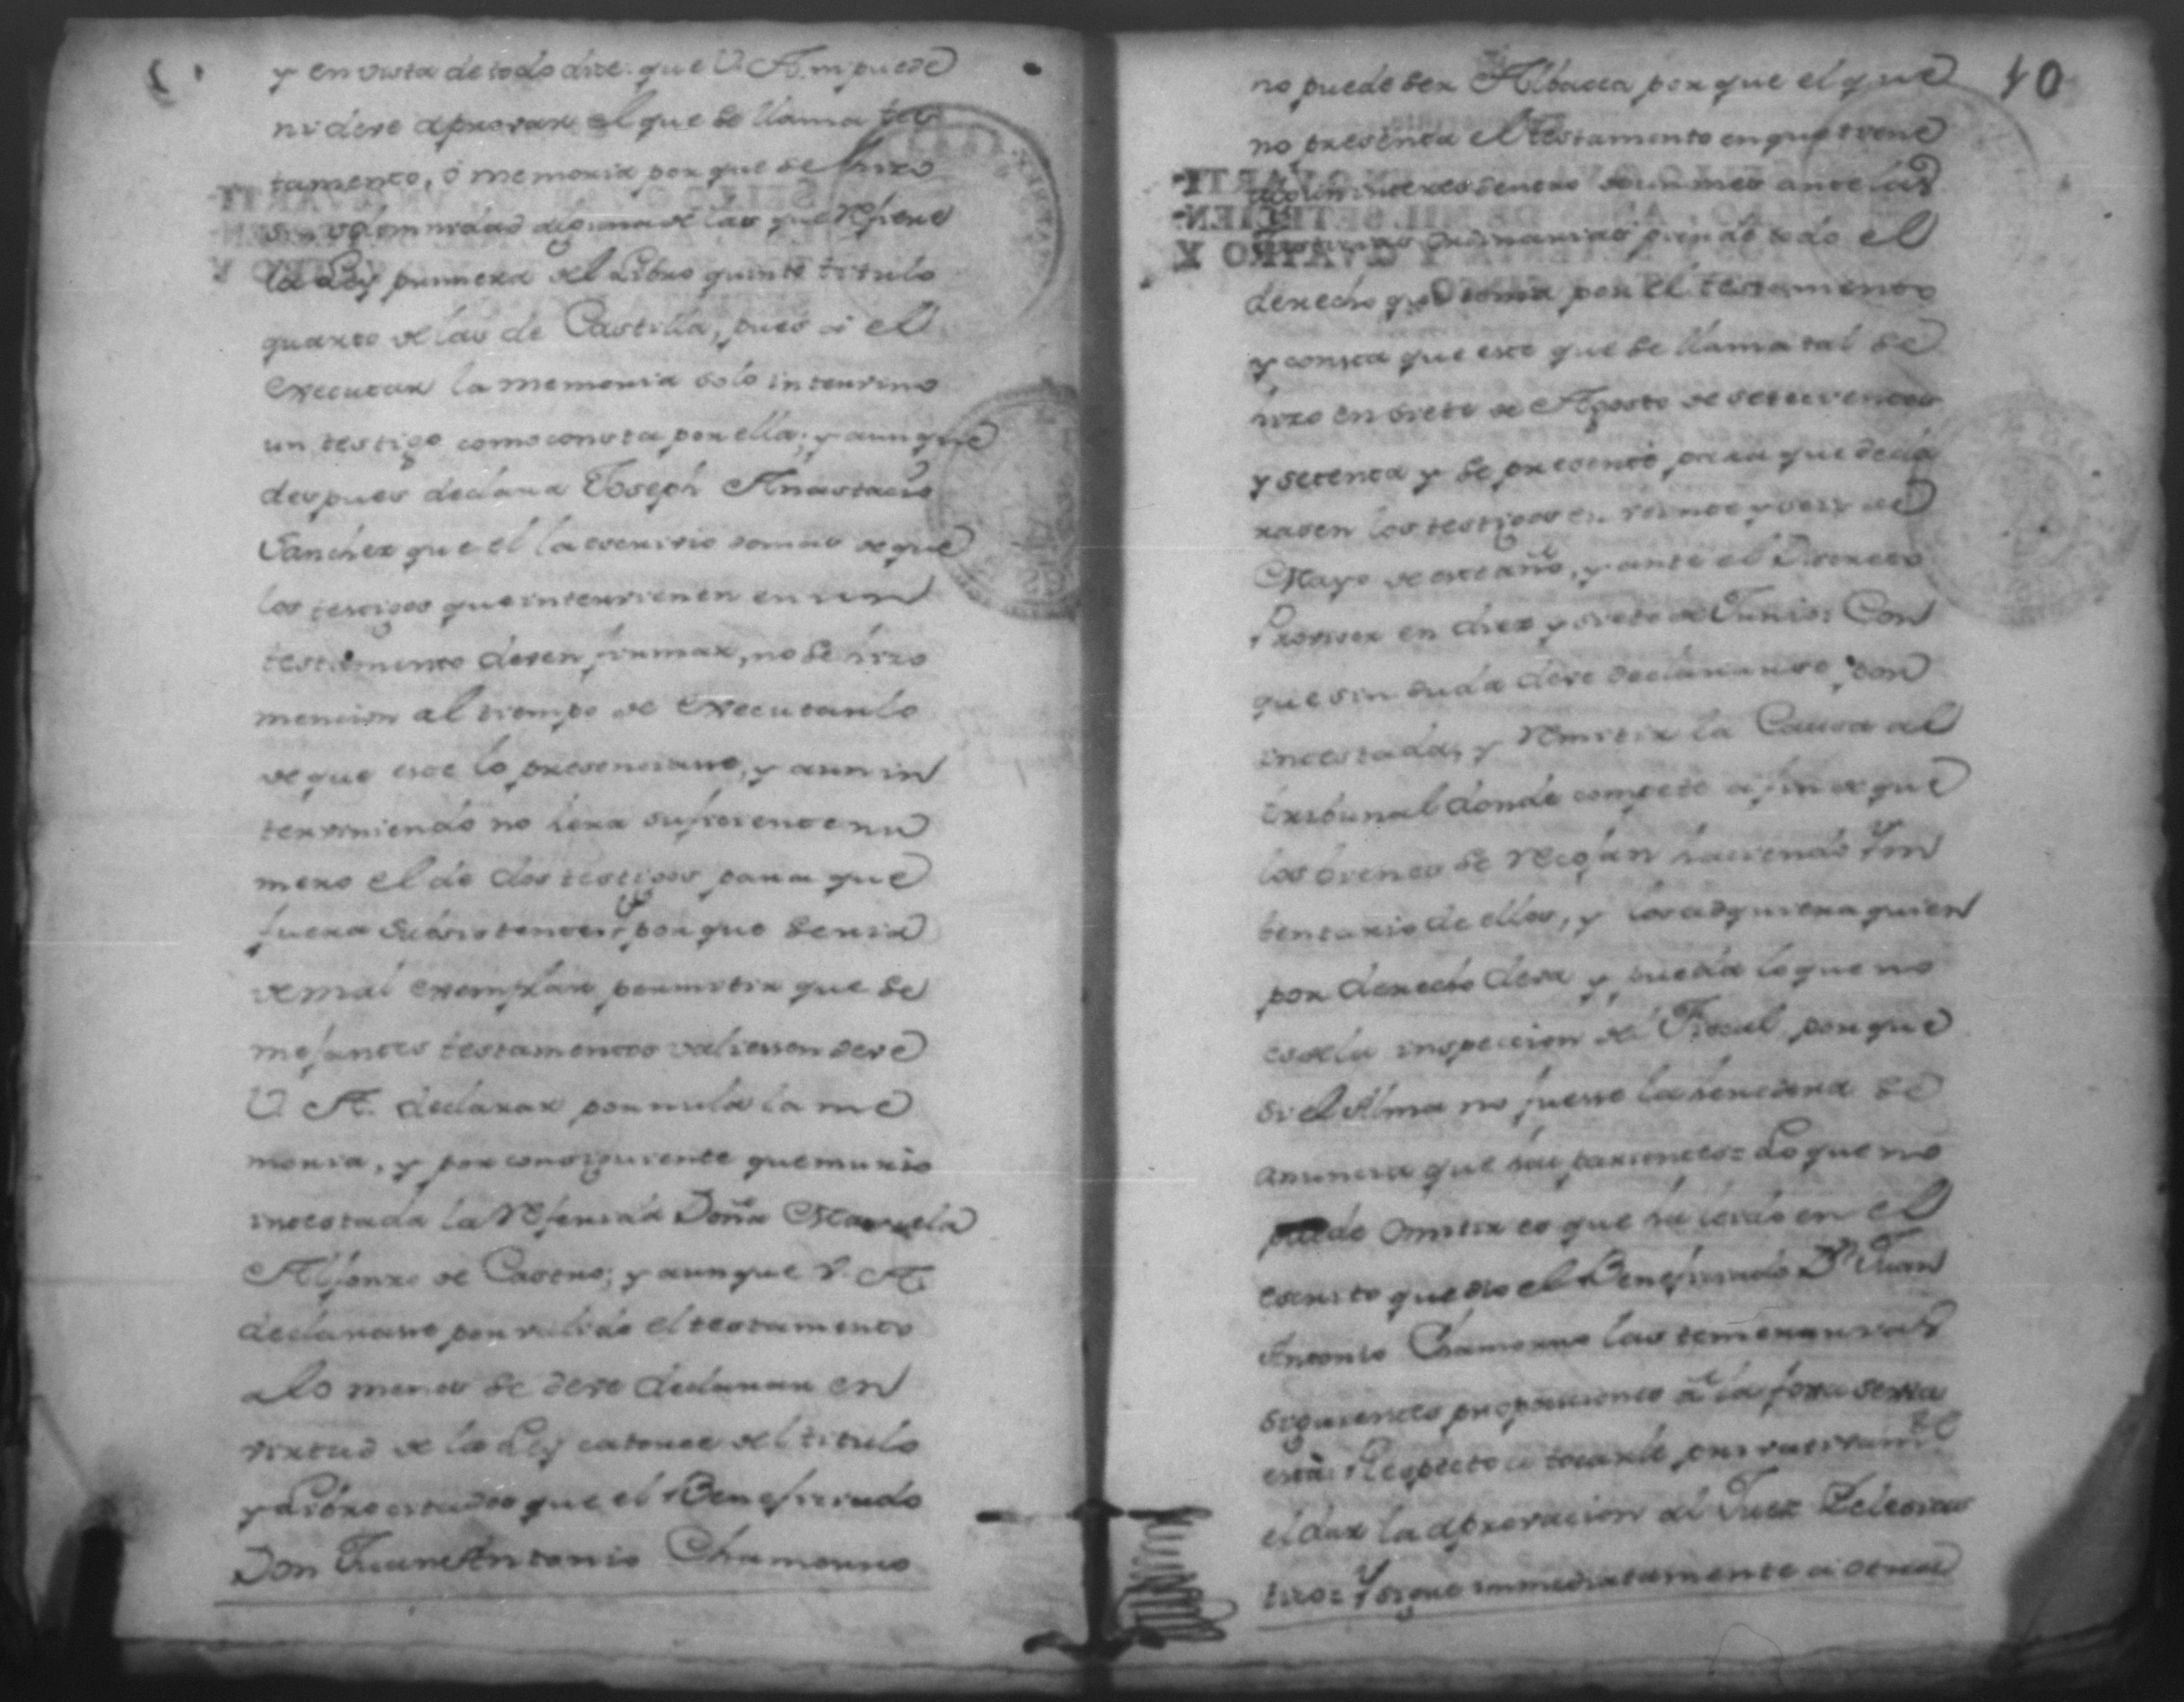 y en vista de todo dice que V. A. ni puede
ni deve aprovar el que se llama tes
tamento, ô memoria por que se hizo
sin solemnidad alguna de las que refiere
la Ley primera del Libro quinto titulo
quarto de las de Castilla, pues â el
executar la memoria solo intervino
un testigo como consta por ella; y aunque
despues declara Joseph Anastacio
Sanchez que el la escrivio demas de que
los testigos que intervienen en un
testamento deven firmar, no se hizo
mencion al tiempo de executarlo
de que este lo presenciasse, y aun in
terviniendo no hera suficiente nu
mero el de dos testigos para que
fuera subsistente; por que seria
de mal exemplar permitir que se
mejantes testamentos valiessen deve
V. A. declarar por nula la me
moria, y por consiguiente que murio
intestada la referida Doña Manuela
Alfonzo de Castro; y aunque V. A.
declarasse por valido el testamento
a lo menos se deve declarar en
virtud de la Ley catorce del titulo
y Libro citados que el Beneficiado
Don Juan Antonio Chamorro
40
no puede ser Albacea por que el que
no presenta el testamento en que tiene
algun interes dentro de un mes ante las
Justicias Ordinarias pierde todo el
derecho que toma por el testamento
y consta que este que se llama tal se
hizo en siete de Agosto de setecientos
y setenta y se presentó para que decla
rasen los testigos en veinte y seis de
Mayo de este año, y ante el Discreto
Provisor en diez y siete de Junio: Con
que sin duda deve declararse por
intestada, y remitir la Causa al
tribunal donde compete a fin de que
los bienes se recojan haciendo Yn
bentario de ellos, y los adquiera quien
por derecho deva y pueda lo que no
es de la inspeccion del Fiscal por que
si el Alma no fuesse la heredera se
anuncia que hai parientes= Lo que no
puede omitir es que ha leido en el
escrito que dio el Beneficiado Dn Juan
Antonio Chamorro las temerarias
siguientes proposiciones â la foxa
esta: Respecto a tocarle privativamte
el dar la aprovacion al Juez Eclesias
tico: Y sigue immediatamente a otra